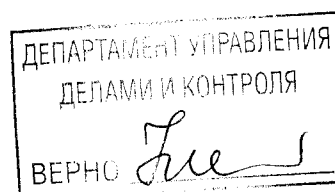 ДЕПАРТАМЕНТ УПРАВЛЕНИЯ
ДЕЛАМИ И КОНТРОЛЯ
ВЕРНО